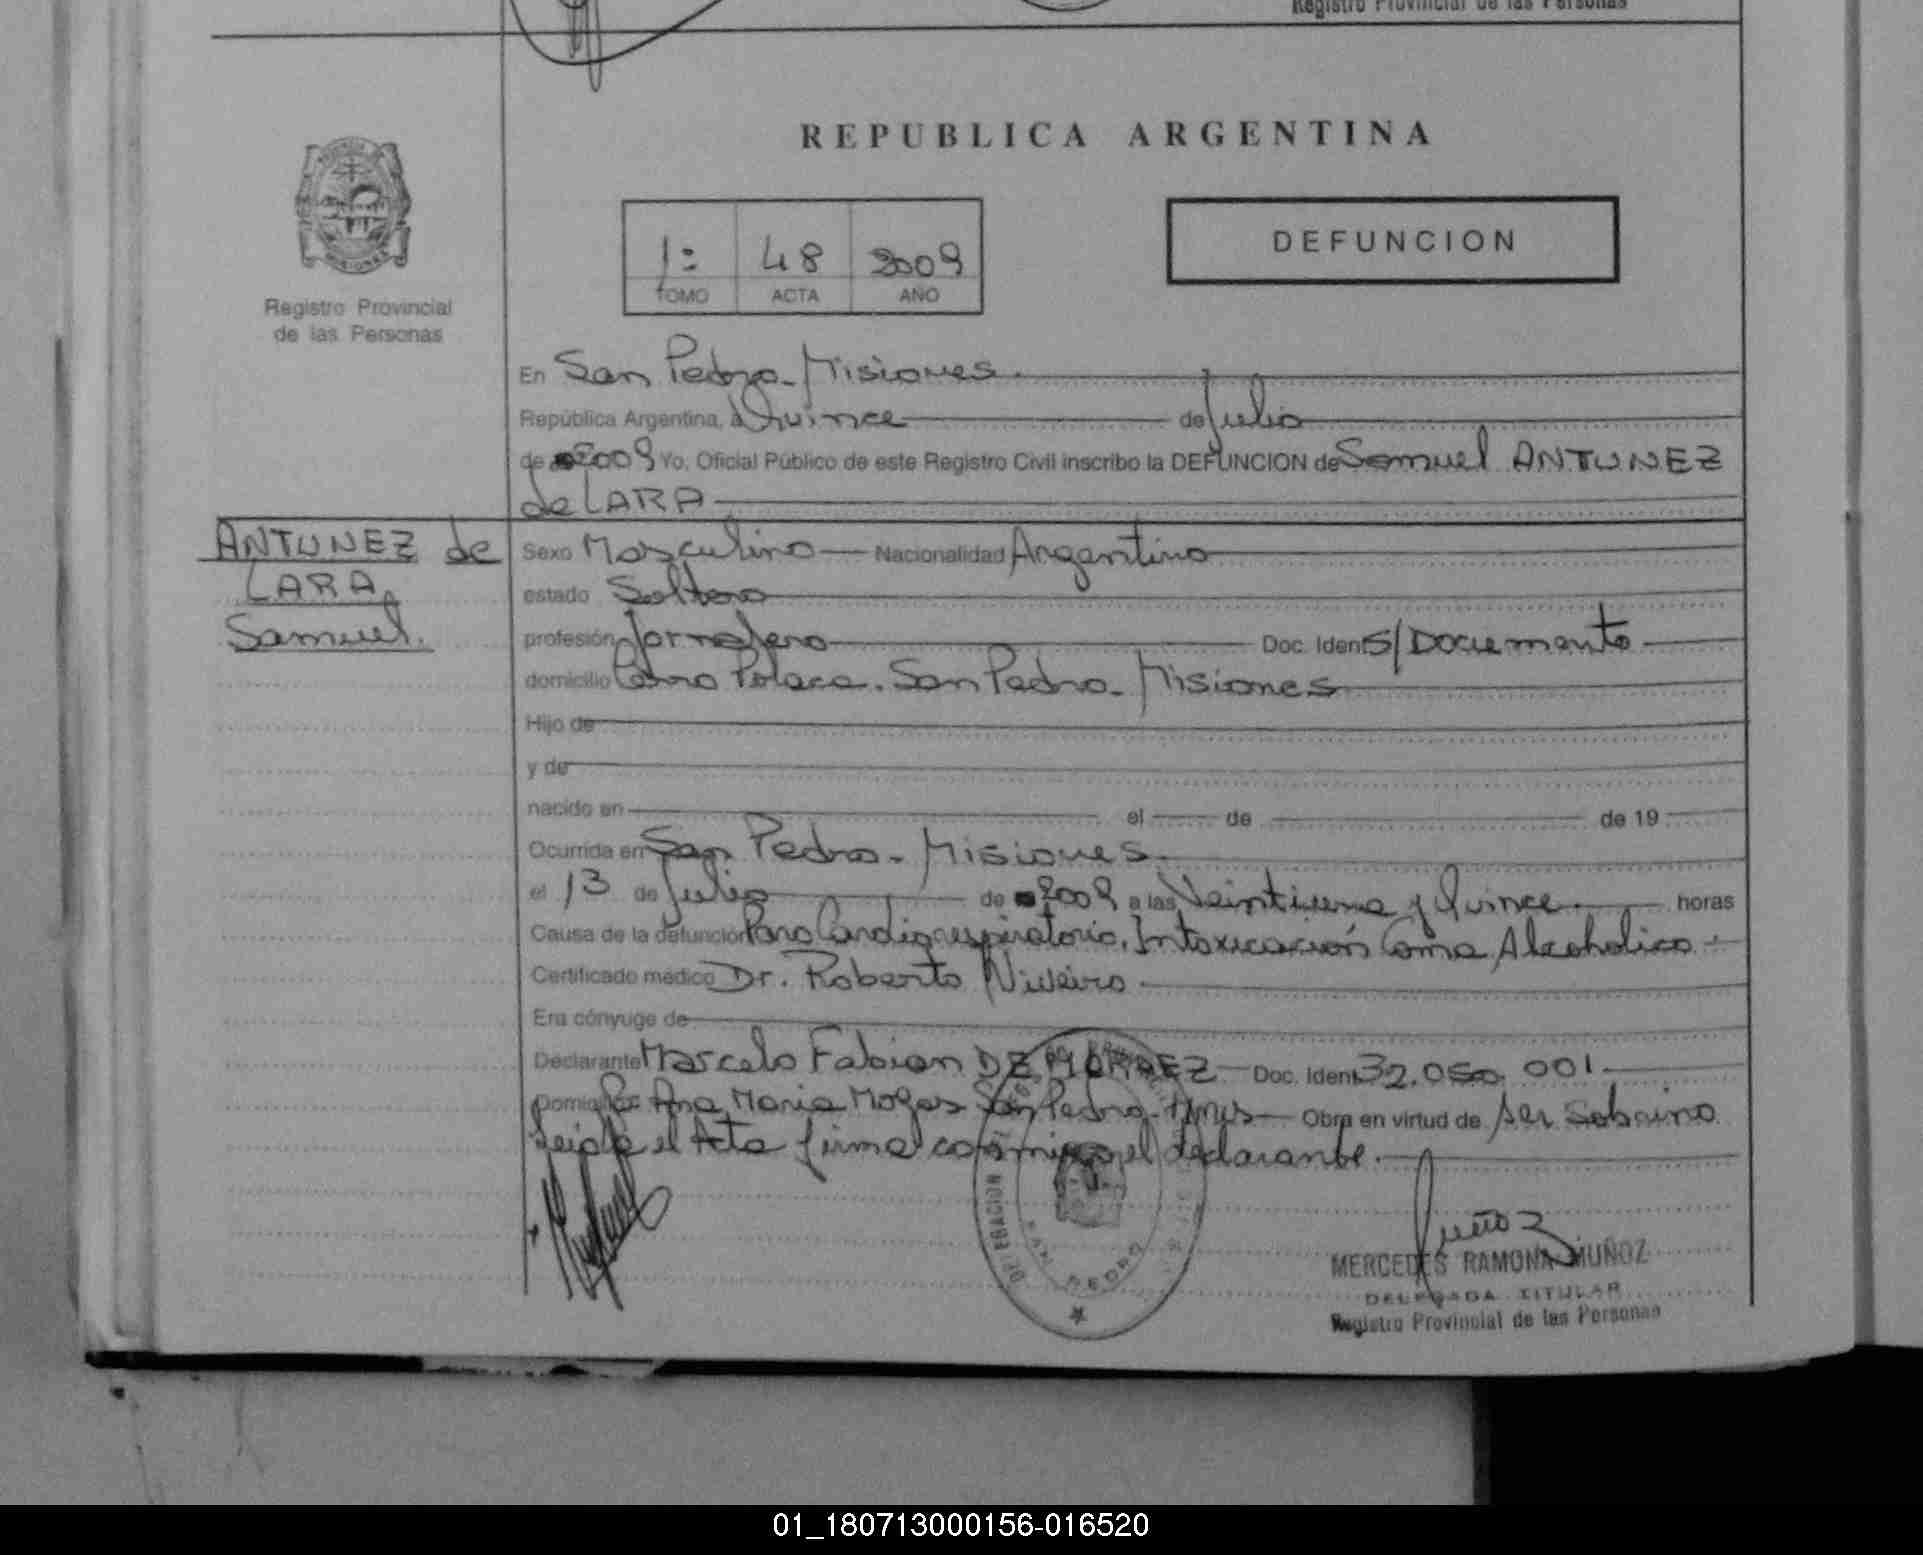 Registro Provincial de las Personas
REPUBLICA ARGENTINA
DEFUNCION
1: 48 2009
TOMO ACTA AÑO
MISIONES
Registro Provincial
de las Personas
En San Pedro - Misiones.
República Argentina, a Quince de Julio
de 2009 Yo, Oficial Público de este Registro Civil inscribo la DEFUNCION de Samuel ANTUNEZ
de LARA
ANTUNEZ de
LARA
Samuel.
Sexo Masculino Nacionalidad Argentino
estado Soltero
profesión Jornalero Doc. Ident S/Documento
domicilio Cerro Polaca. San Pedro - Misiones
Hijo de
y de
nacido en el de de 19
Ocurrida en San Pedro - Misiones
el 13 de Julio de 2009 a las Veintiuna y Quince horas
Causa de la defunción Paro Cardiorespiratorio, Intoxicación Coma Alcoholico
Certificado médico Dr. Roberto Niveiro
Era cónyuge de
Declarante Marcelo Fabian DE Doc. Ident 32.050.001
Domicilio Ana Maria Mogas San Pedro - Mnes Obra en virtud de ser Sobrino
Leida el Acta firma conmigo el declarante.
DELEGACION
SAN PEDRO
Muñoz
MERCEDES RAMONA MUÑOZ
DELEGADA TITULAR
Registro Provincial de las Personas
01_180713000156-016520